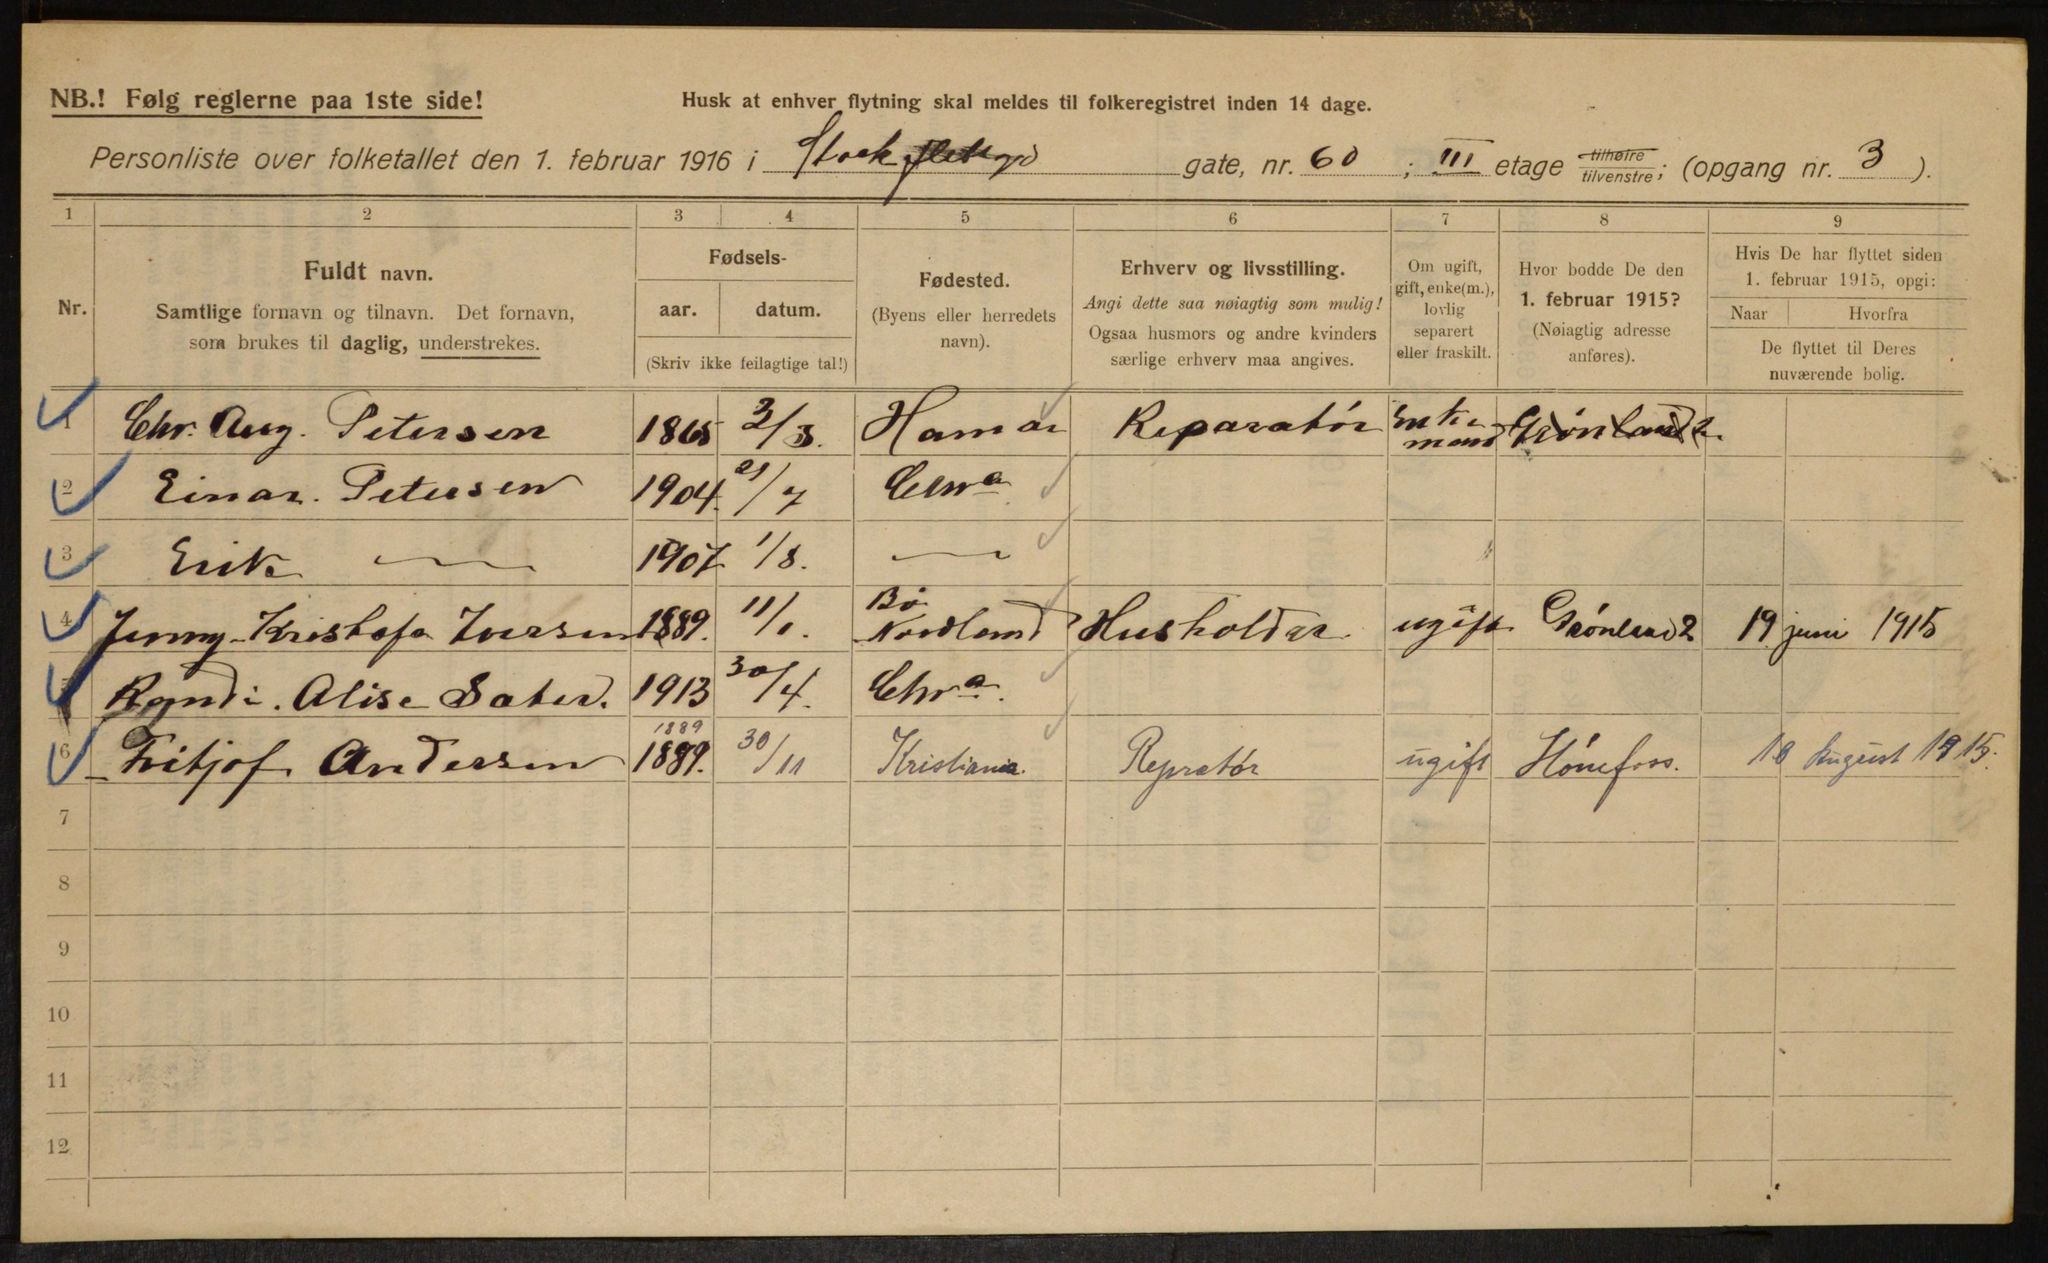 NB.! Følg reglerne paa 1ste side!
Husk at enhver flytning skal meldes til folkeregistret inden 14 dage.
Personliste over folketallet den 1. februar 1916 i gate, nr. 60; III etage tilhøire tilvenstre; (opgang nr. 3).
1 2 3 4 5 6 7 8 9
Nr. Fuldt navn. Samtlige fornavn og tilnavn. Det fornavn, som brukes til daglig, understrekes.
Fødsels- aar. datum. (Skriv ikke feilagtige tal!)
Fødested. (Byens eller herredets navn).
Erhverv og livsstilling. Angi dette saa nøiagtig som mulig! Ogsaa husmors og andre kvinders særlige erhverv maa angives.
Om ugift, gift, enke(m.), lovlig separert eller fraskilt.
Hvor bodde De den 1. februar 1915? (Nøiagtig adresse anføres).
Hvis De har flyttet siden 1. februar 1915, opgi: Naar Hvorfra De flyttet til Deres nuværende bolig.
1 Chr. Aug. Petersen 1865 2/3. Hamar Reparatór Enke mand Grónland 2
2 Einar. Petersen 1904. 21/7 Chra
3 Erik — 1907 1/8. —
4 Jenny Kristofa Iversen 1889. 11/1. Bø Nordland Husholder ugift Grónland 2 19 juni 1915
5 Randi. Alise Sater. 1913 30/4. Chra.
6 Fritjof Andersen 1889 1889. 30/11 Kristiania. Repratór ugift Hónefoss. 10 August 1915.
7
8
9
10
11
12